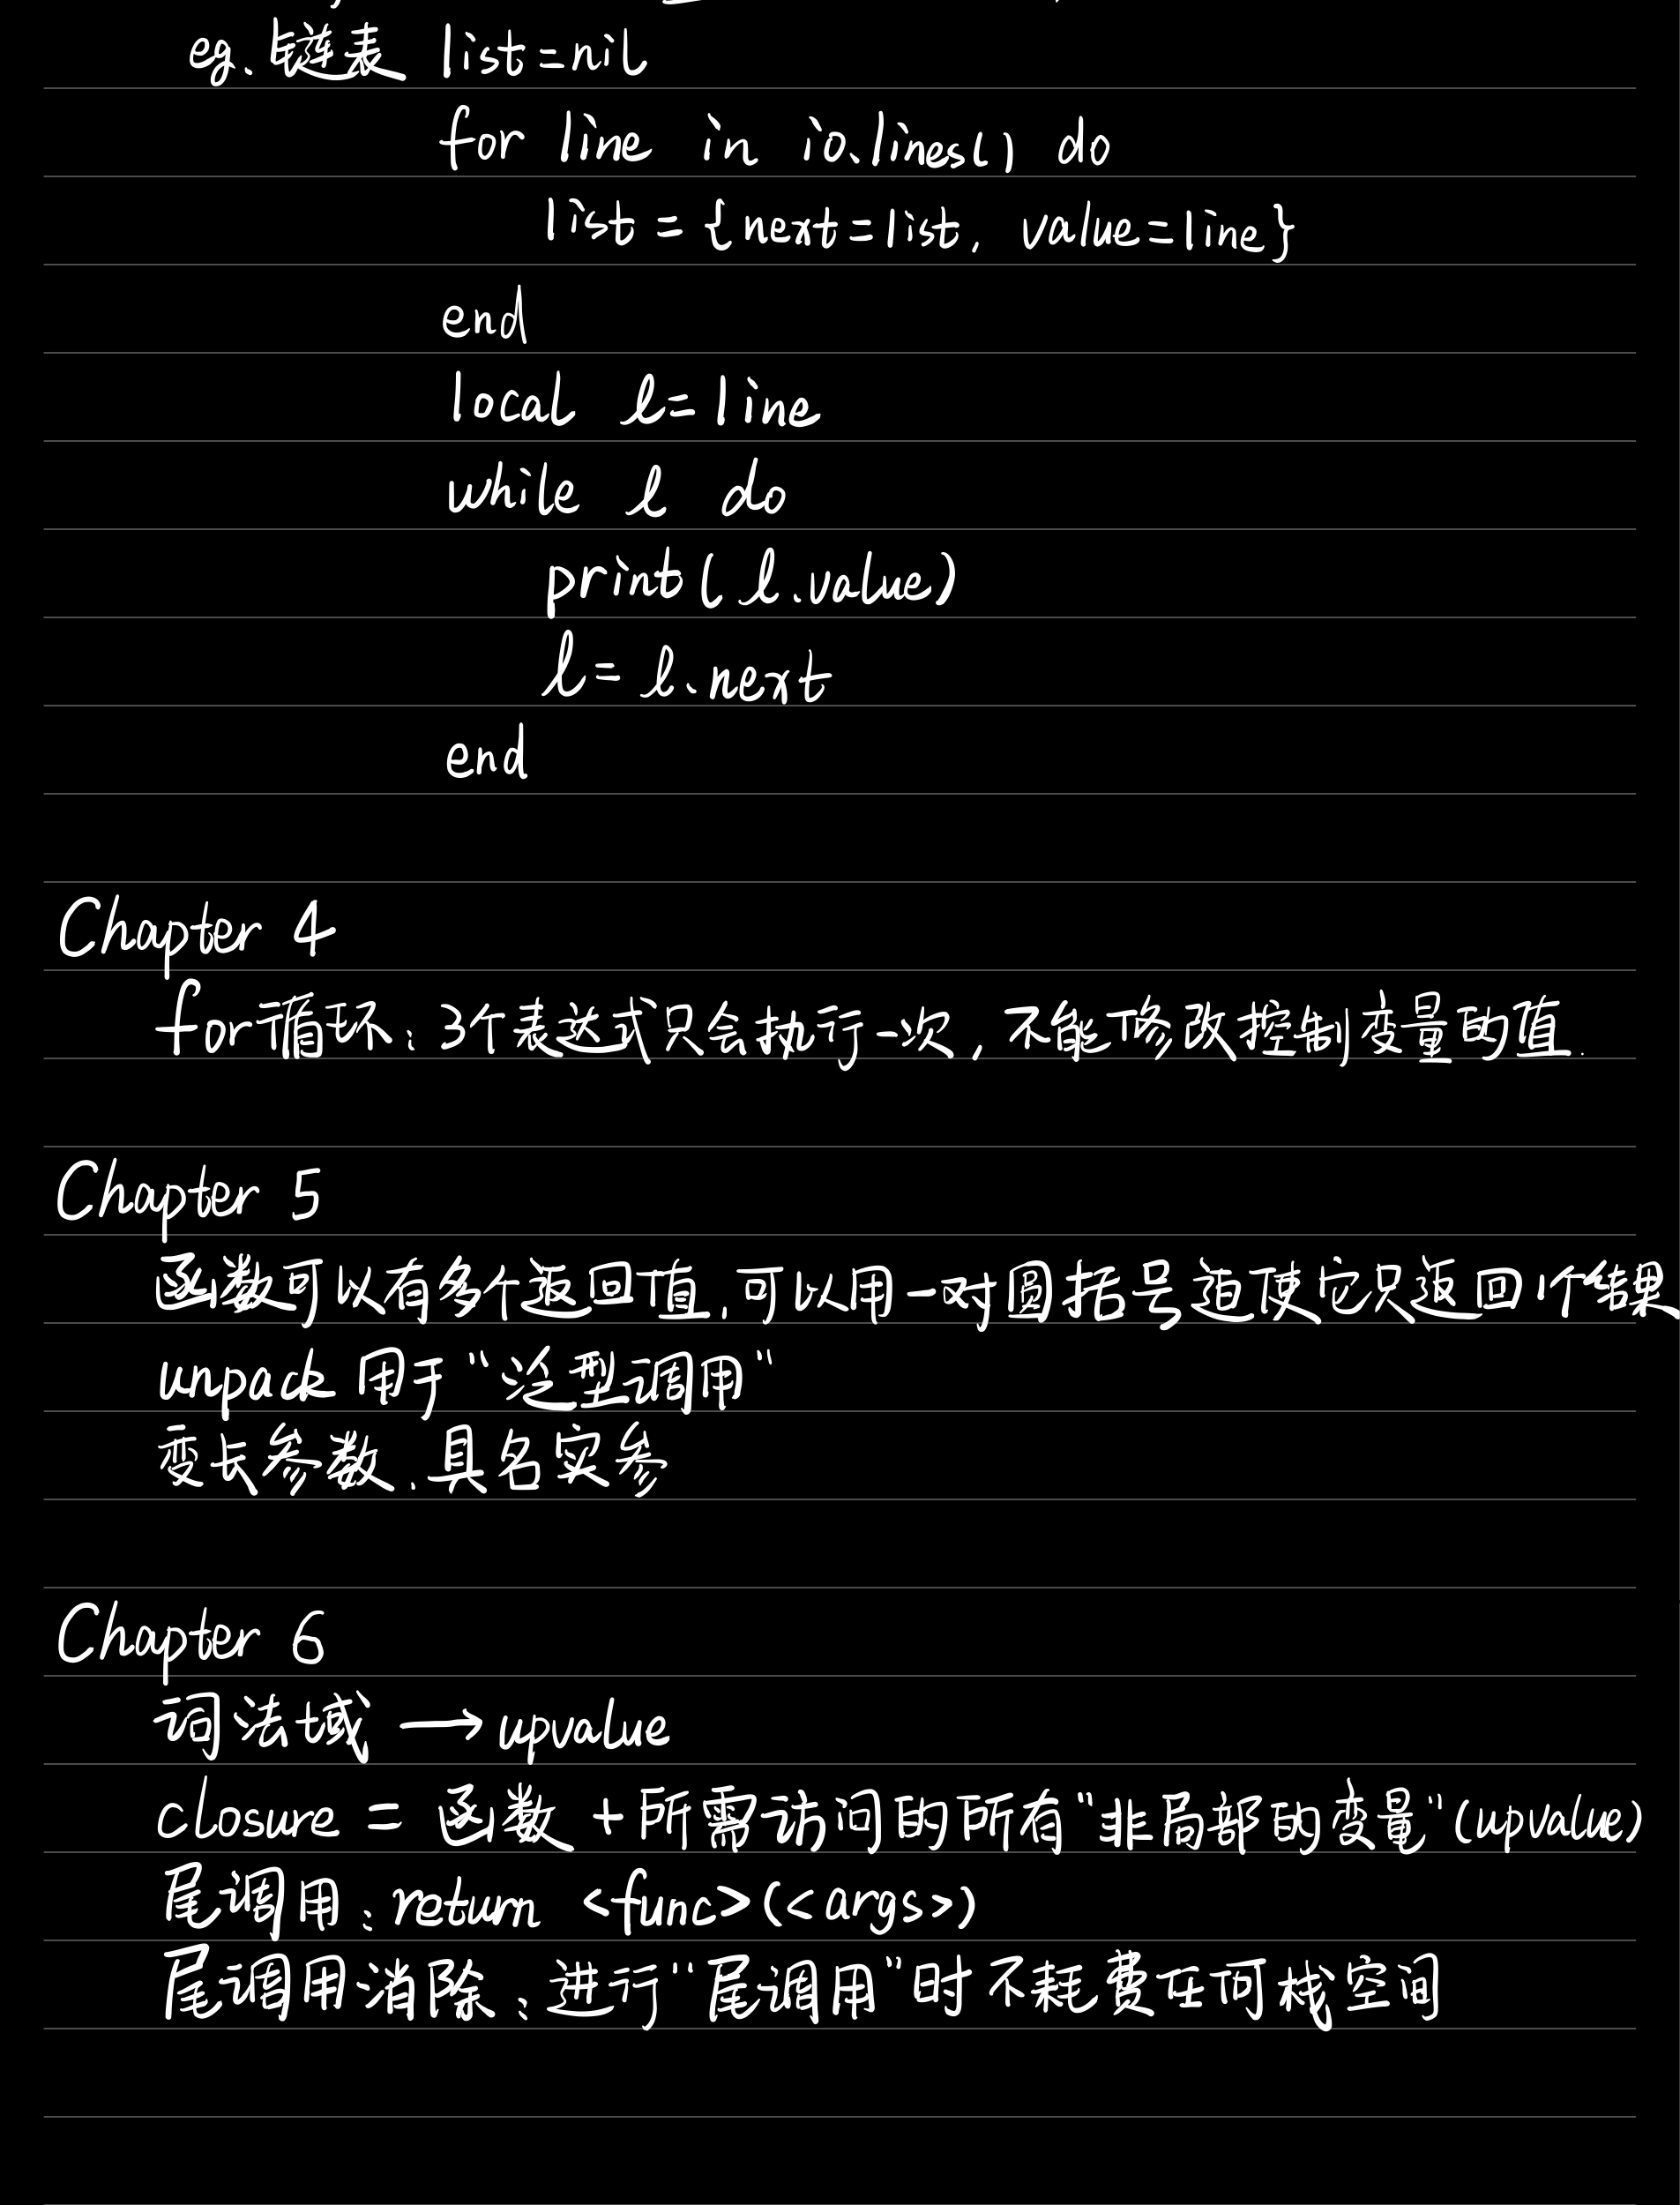 eg. 链表 list=nil
for line in io.lines() do
list = {next=list, value=line}
end
local l=line
while l do
print(l.value)
l=l.next
end
Chapter 4
for循环:3个表达式只会执行一次,不能修改控制变量的值.
Chapter 5
函数可以有多个返回值,可以用一对圆括号迫使它只返回1个结果
unpack 用于"泛型调用"
变长参数,具名实参
Chapter 6
词法域 → upvalue
closure = 函数 + 所需访问的所有"非局部的变量"(upvalue)
尾调用:return <func>(<args>)
尾调用消除:进行"尾调用"时不耗费任何栈空间